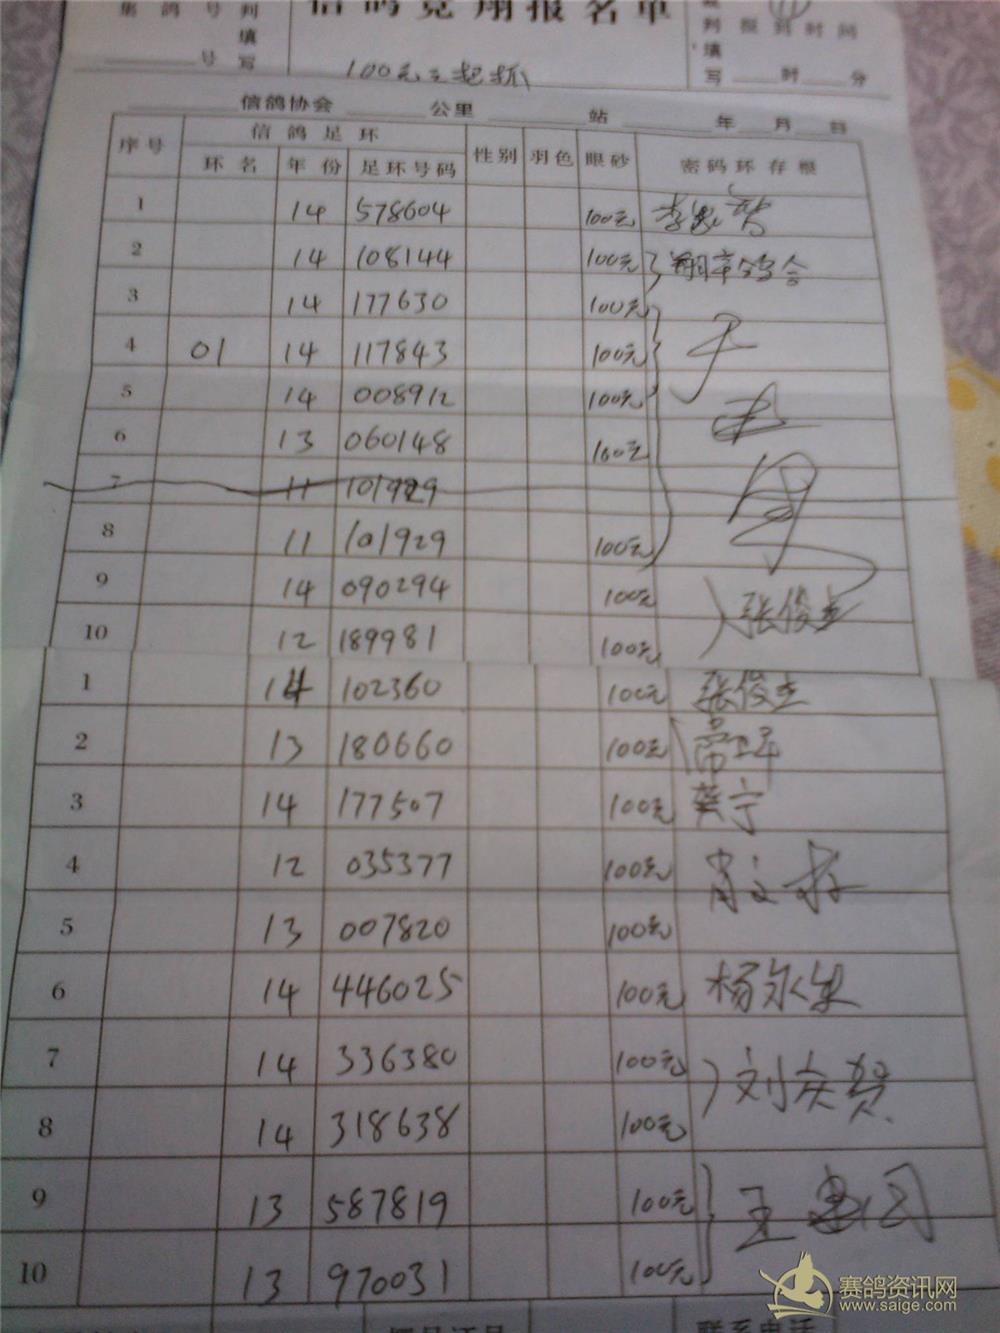 集 鸽 号 判 信鸽竞翔报名单 裁 报到时间
填 判
号 写 填
100元三起抓 写 时 分
信鸽协会 公里 站 年 月 日
序号 信鸽足环 性别 羽色 眼砂 密码环存根
环名 年份 足环号码
1 14 578604 100元
2 14 108144 100元 翔宇鸽会
3 14 177630 100元
4 01 14 117843 100元
5 14 008912 100元
6 13 060148 100元
7 11 101929
8 11 101929 100元
9 14 090294 100元 张俊杰
10 12 189981 100元
1 14 102360 100元 张俊杰
2 13 180660 100元
3 14 177507 100元 龚宁
4 12 035377 100元
5 13 007820 100元
6 14 446025 100元 杨永生
7 14 336380 100元 刘庆贺
8 14 318638 100元
9 13 587819 100元 王
10 13 970031 100元
联系电话
赛鸽资讯网
www.saige.com